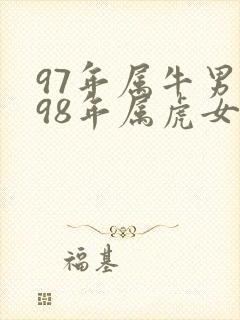 97年属牛男
98年属虎女
福基